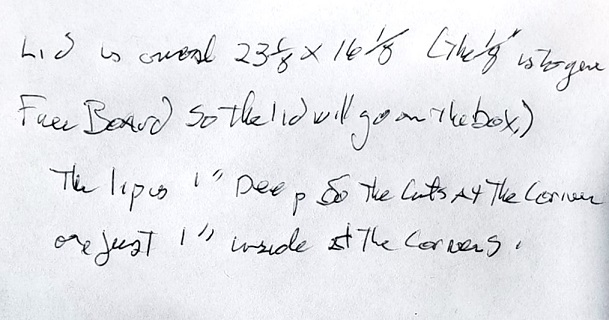 Lid is overal 23 1/8 x 16 1/8 (The 1/8" is to give
Free Board so the lid will go on the box.)
The lip is 1" Deep So The Cuts At The Corner
are just 1" inside at The Corners.